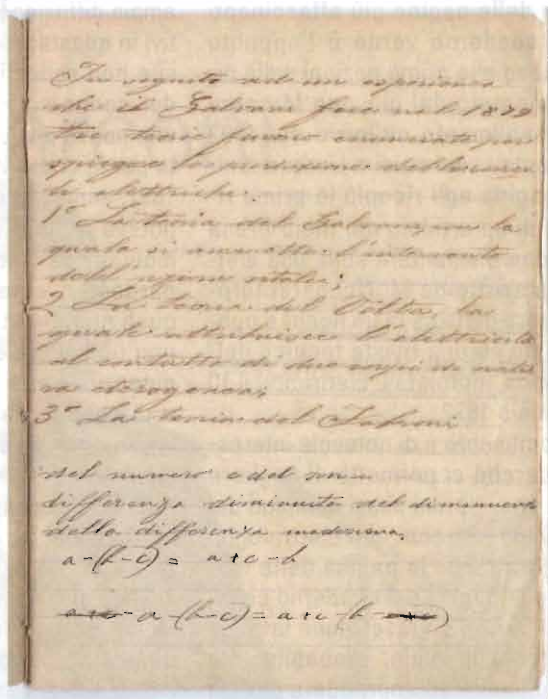 In seguito ad un esperienza
che il Galvani fece nel 1879
tre teorie furono enunciate per
spiegare la produzione del fenomeno
di elettriche:
1° La teoria del Galvani, con la
quale si ammette l'intervento
dell'agente vitale;
2 La teoria del Volta, la
quale attribuisce l'elettricità
al contatto di due corpi di natu
ra eterogenea;
3° La teoria del Fabroni
del numero e del
differenza diminuita del diminuendo
della differenza medesima.
a-(b-c) = a+c-b
a-(b-c) = a+c-(b-)